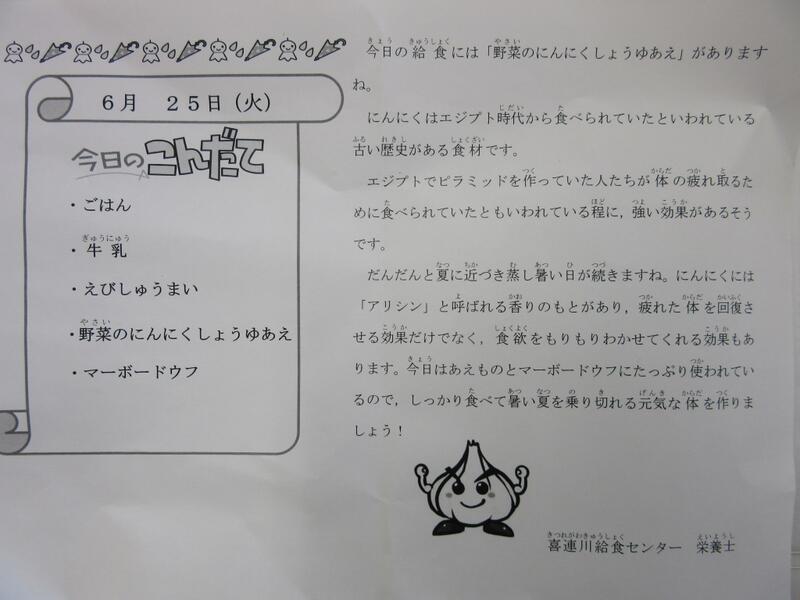 6月 25日(火)
今日のこんだて
・ごはん
・牛乳
・えびしゅうまい
・野菜のにんにくしょうゆあえ
・マーボードウフ
今日の給食には「野菜のにんにくしょうゆあえ」があります
ね。
にんにくはエジプト時代から食べられていたといわれている
古い歴史がある食材です。
エジプトでピラミッドを作っていた人たちが体の疲れ取るた
めに食べられていたともいわれている程に,強い効果があるそう
です。
だんだんと夏に近づき蒸し暑い日が続きますね。にんにくには
「アリシン」と呼ばれる香りのもとがあり,疲れた体を回復さ
せる効果だけでなく,食欲をもりもりわかせてくれる効果もあ
ります。今日はあえものとマーボードウフにたっぷり使われてい
るので,しっかり食べて暑い夏を乗り切れる元気な体を作りま
しょう!
喜連川給食センター 栄養士